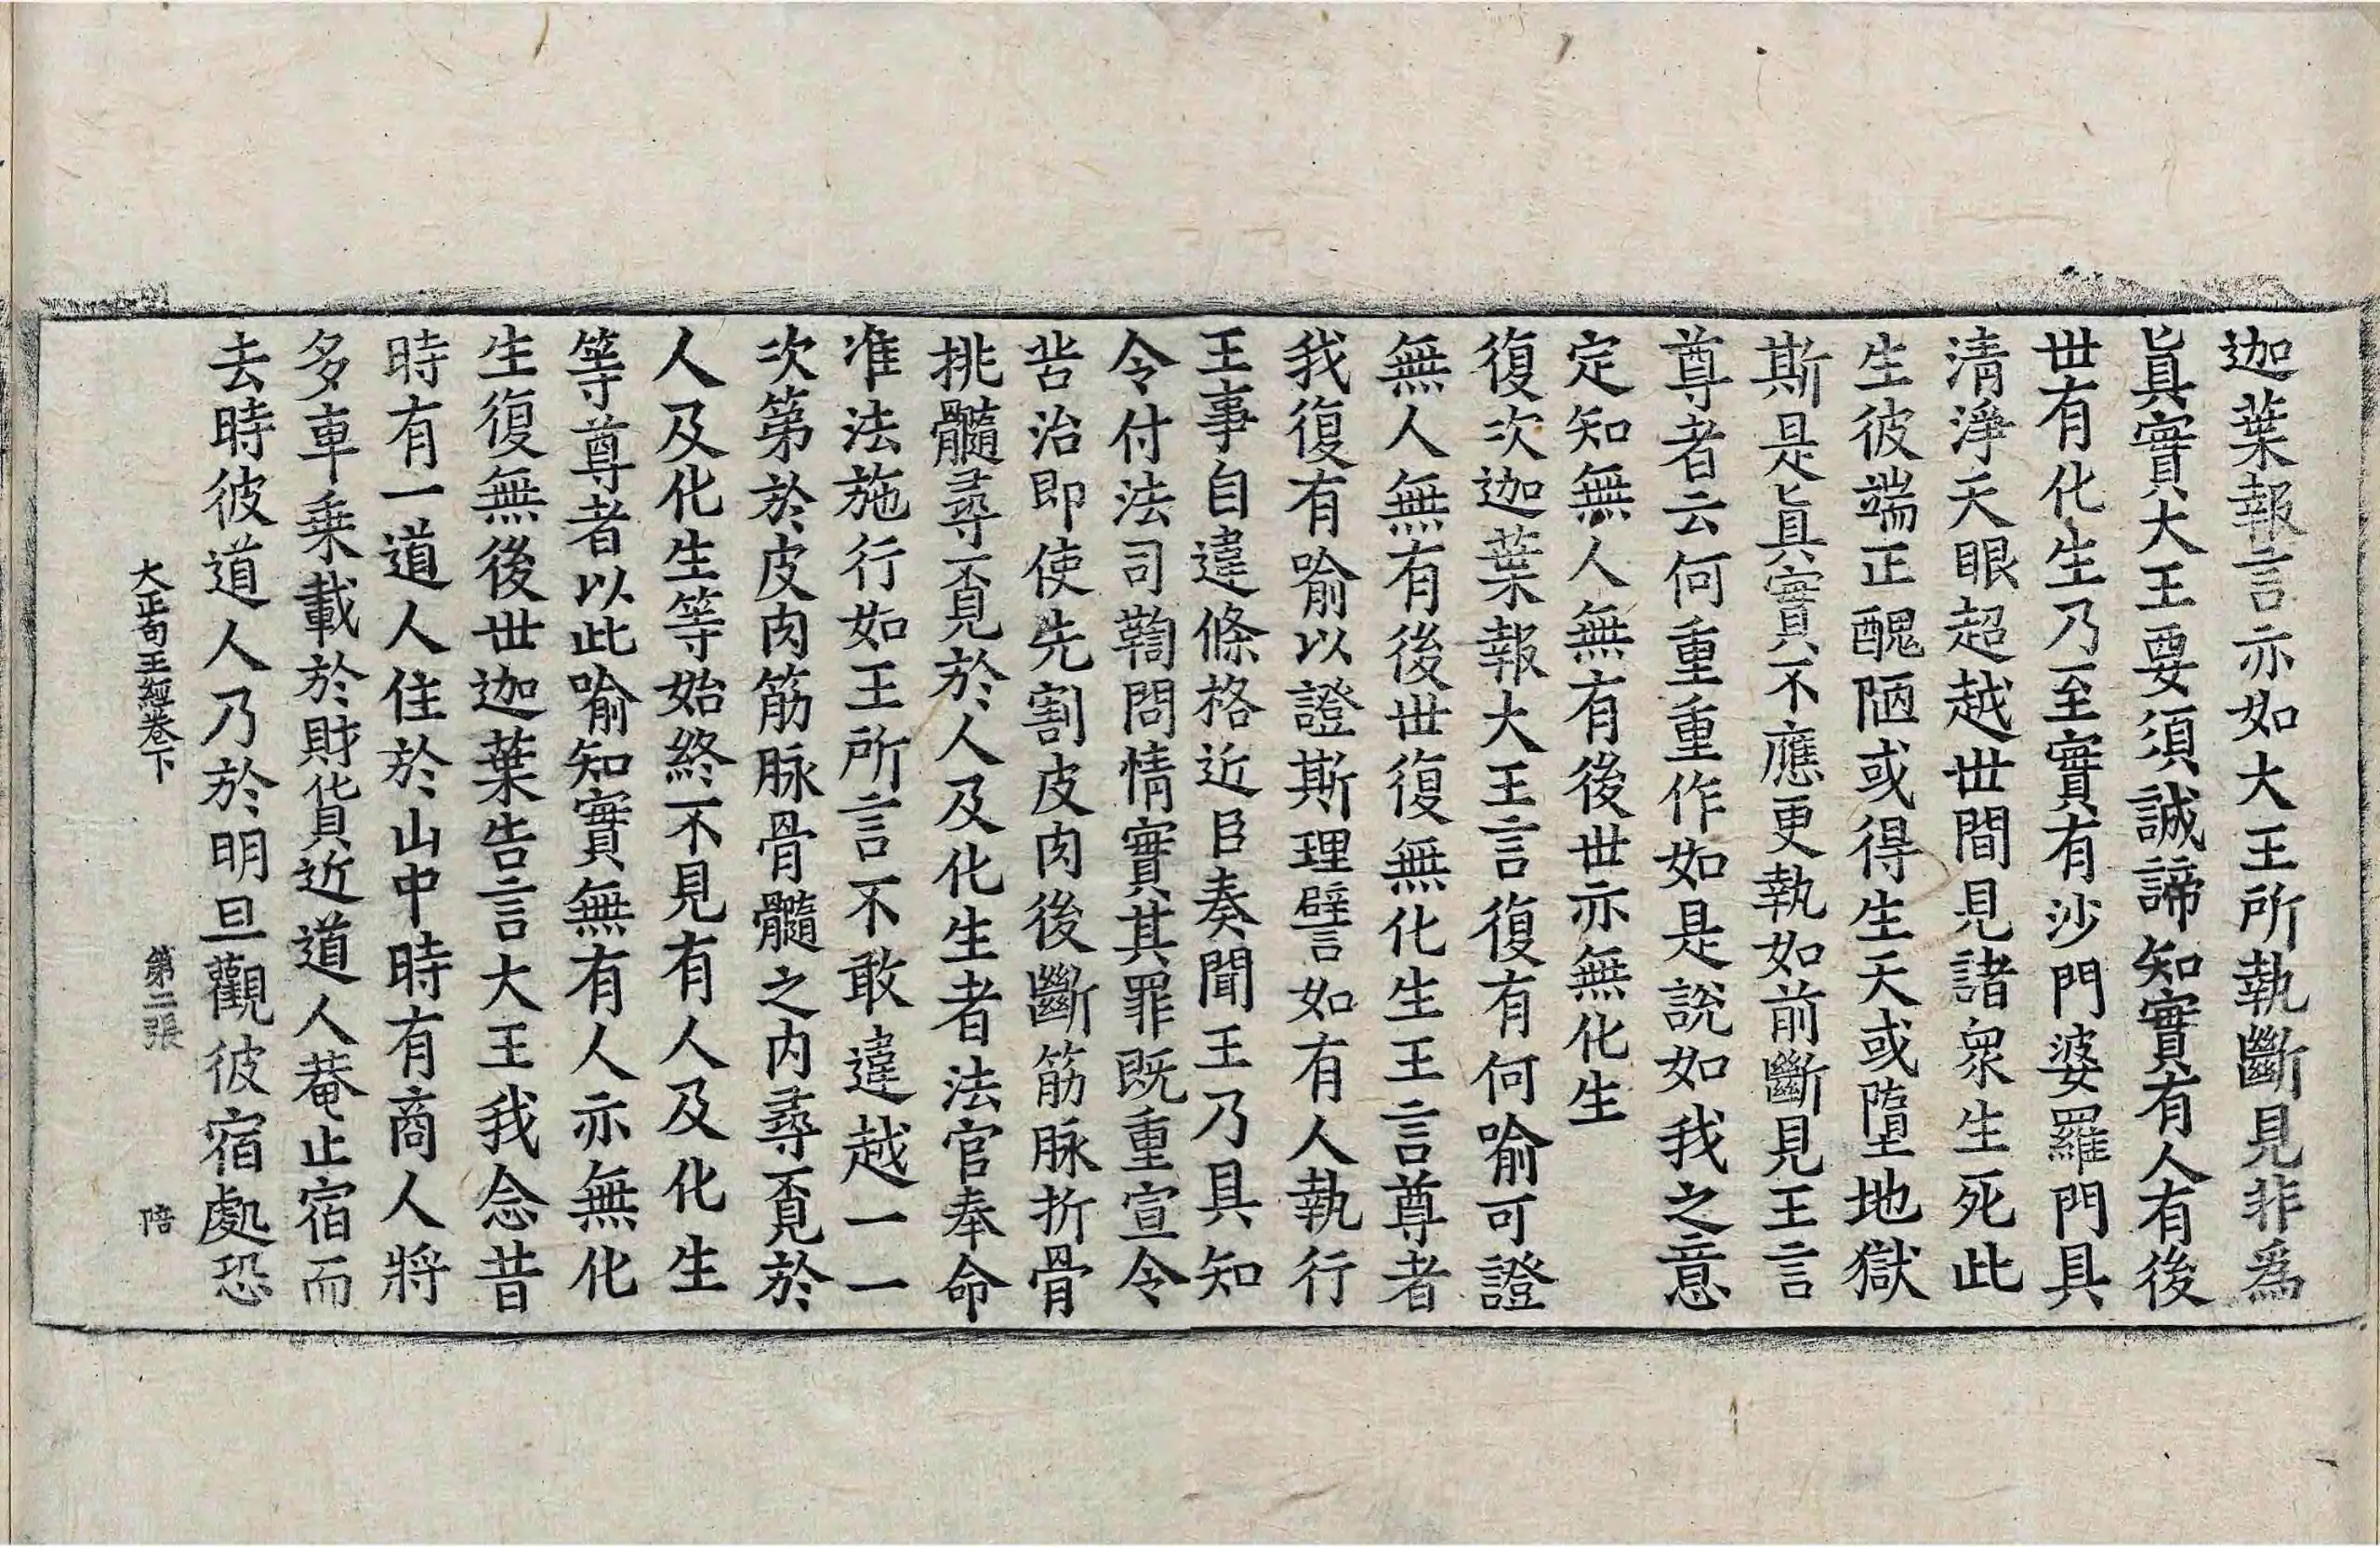 迦葉報言亦如大王所執斷見非爲
眞實大王要須誠諦知實有人有後
世有化生乃至實有沙門婆羅門具
淸淨天眼超越世間見諸衆生死此
生彼端正醜陋或得生天或墮地獄
斯是眞實不應更執如前斷見王言
尊者云何重重作如是說如我之意
定知無人無有後世亦無化生
復次迦葉報大王言復有何喻可證
無人無有後世復無化生王言尊者
我復有喻以證斯理譬如有人執行
王事自違條格近臣奏聞王乃具知
令付法司鞫問情實其罪既重宣令
苦治即使先割皮肉後斷筋脉折骨
挑髓尋覓於人及化生者法官奉命
准法施行如王所言不敢違越一一
次第於皮肉筋脉骨髓之內尋覓於
人及化生等始終不見有人及化生
等尊者以此喻知實無有人亦無化
生復無後世迦葉告言大王我念昔
時有一道人住於山中時有商人將
多車乗載於財貨近道人菴止宿而
去時彼道人乃於明旦觀彼宿處恐
大正句王經卷下 第二張 陪